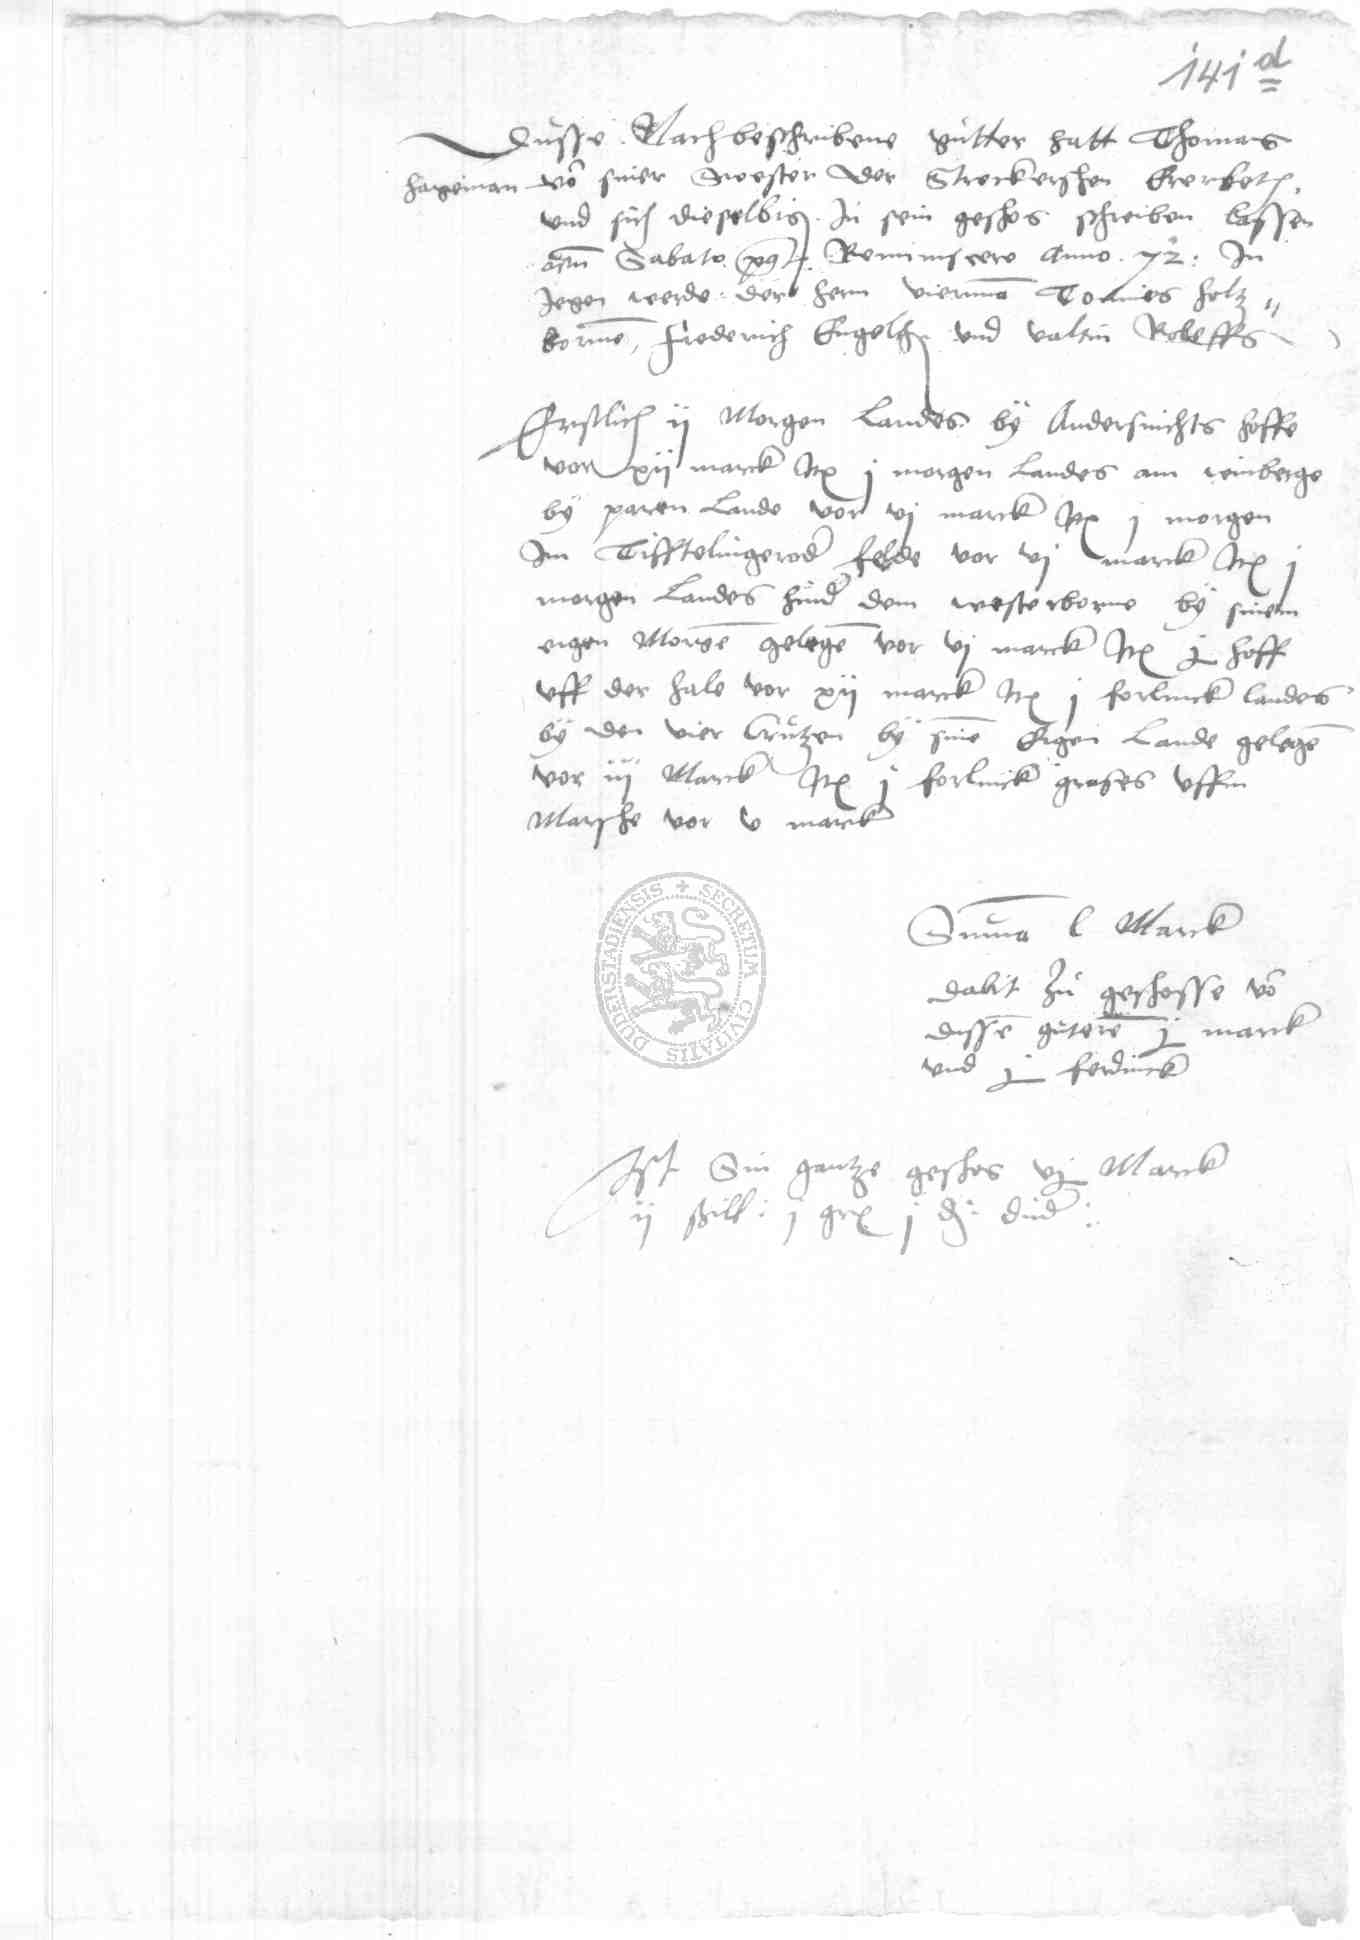 141 d
Dusse Nachbeschribene gutter hatt Thomas
Hageman vō siner Swester der Streckershen Ererbet
und sich dieselbig In sein geschos schreiben lassen
actū Sabato post Reminiscere Anno 72 In
Jegen werde der hern viermā Tonnies holtz
bornē, Frederich Engelh und valtin Roleffs
Erstlich ij Morgen Landes by Andersnichts hoffe
vor xij marck It j morgen Landes am winberge
by paren Lande vor vj marck It j morgen
Im Tifftelingerod felde vor vj marck It j
morgen Landes hind dem westerborne by sinem
eigen Morgē gelegē vor vj marck It j hoff
uff der hale vor xij marck It j forlinck landes
by den vier Crutzen by sinē Eigen Lande gelegē
vor iij Marck It j forlinck grases uffm
Marshe vor v marck
Suma l Marck
dabit zu geschosse vō
dissē guterē j marck
und j ferdinck
Ist Sin gantze geschos vj Marck
ij schill : j gr j d : dud :
DUDERSTADIENSIS + SECRETUM CIVITATIS